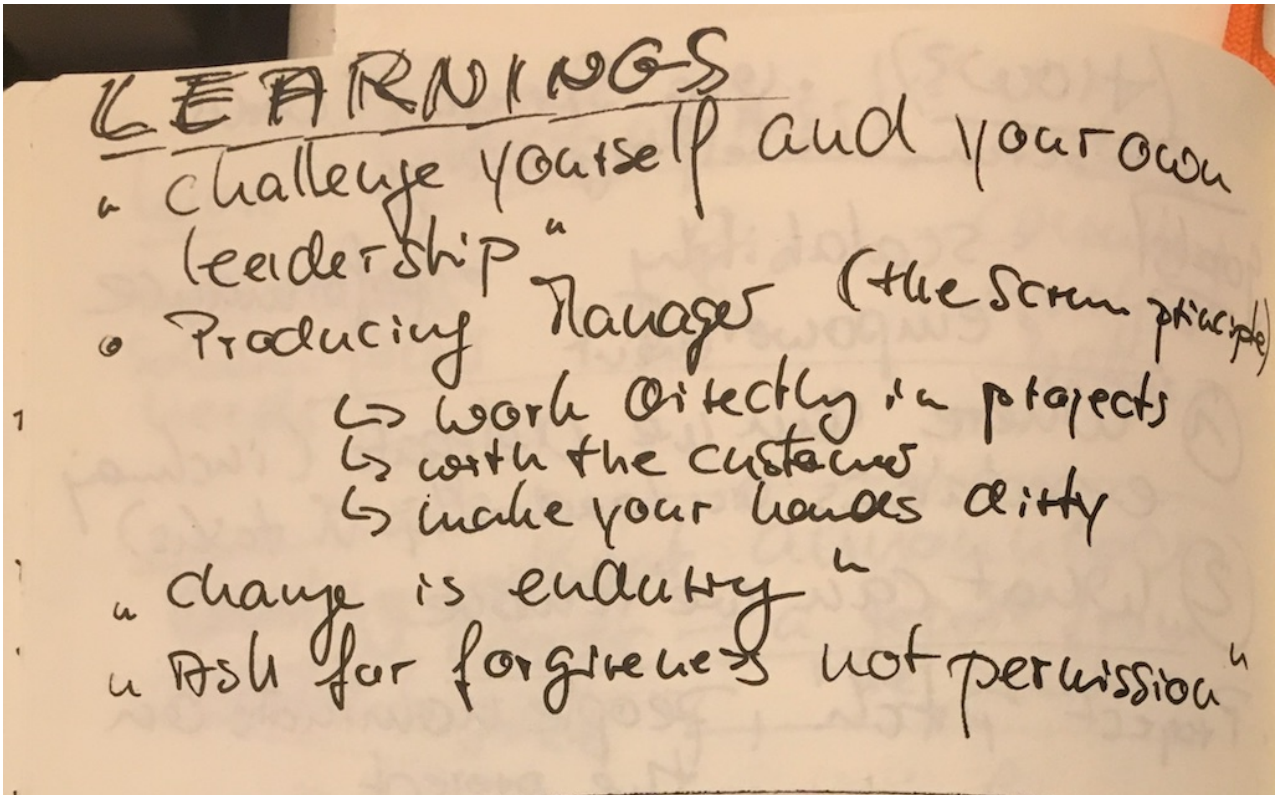 LEARNINGS
„challenge yourself and your own
leadership"
• Producing Manager (the Scrum principle)
↳ work directly in projects
↳ with the customer
↳ make your hands dirty
„change is enduring"
„Ask for forgiveness not permission"